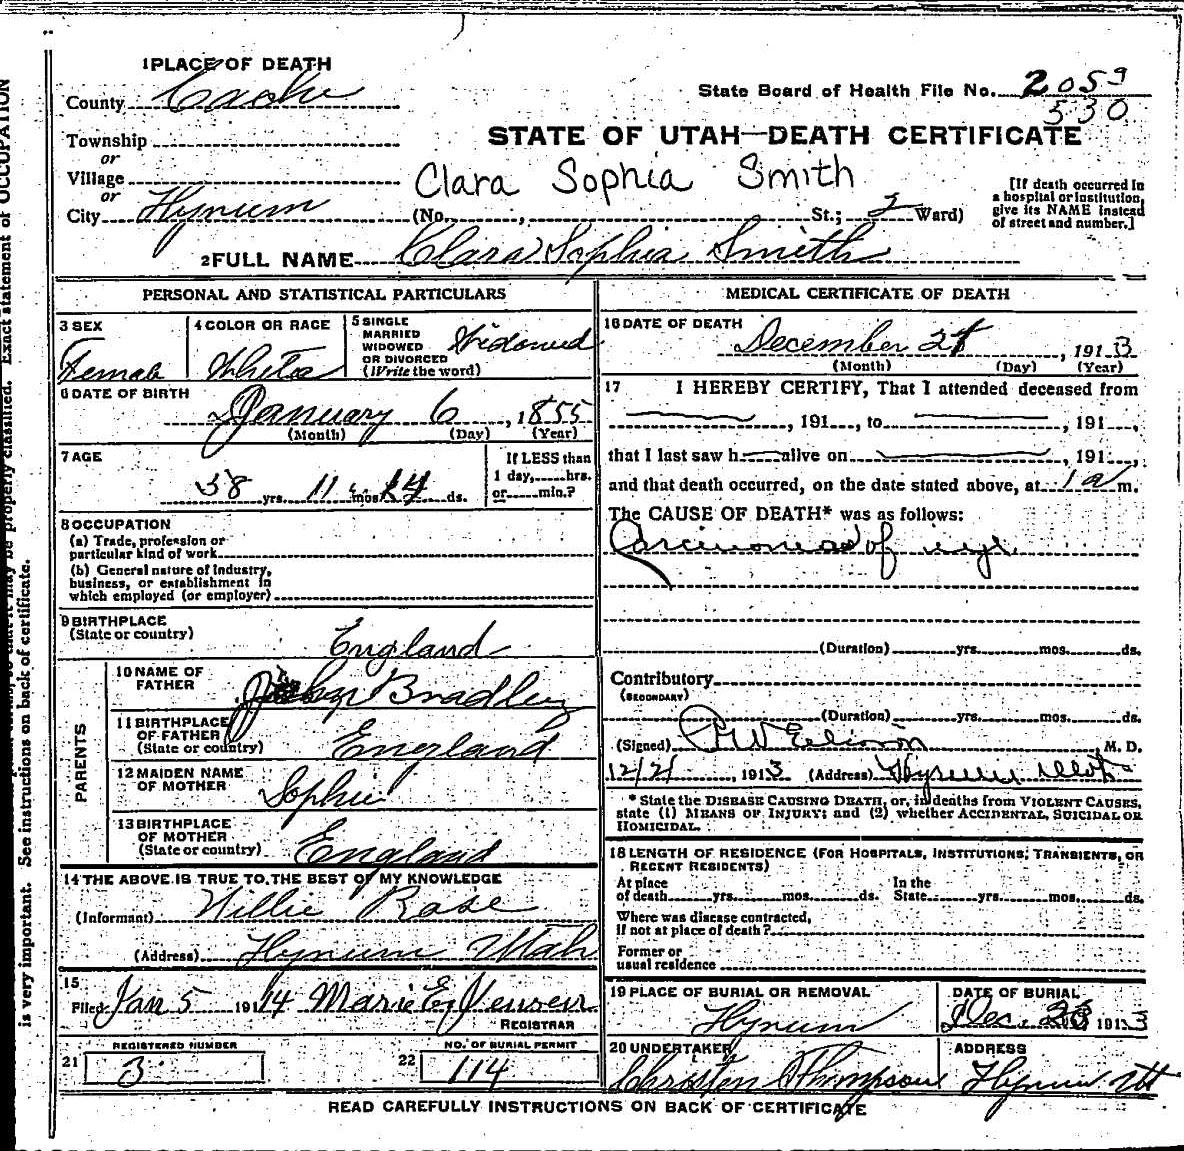 1 PLACE OF DEATH
County Cache
State Board of Health File No. 2059
530
Township
or
Village
or
STATE OF UTAH—DEATH CERTIFICATE
Clara Sophia Smith
City Hyrum (No. , St.; 2 Ward)
[If death occurred in
a hospital or institution,
give its NAME instead
of street and number.]
2 FULL NAME Clara Sophia Smith
PERSONAL AND STATISTICAL PARTICULARS
3 SEX
Female
4 COLOR OR RACE
White
5 SINGLE
MARRIED
WIDOWED
OR DIVORCED
(Write the word)
Widowed
6 DATE OF BIRTH
January 6, 1855
(Month) (Day) (Year)
7 AGE
58 yrs. 11 mos. 14 ds.
If LESS than
1 day, hrs.
or min.?
8 OCCUPATION
(a) Trade, profession or
particular kind of work
(b) General nature of industry,
business, or establishment in
which employed (or employer)
9 BIRTHPLACE
(State or country)
England
PARENTS
10 NAME OF
FATHER
Bradley
11 BIRTHPLACE
OF FATHER
(State or country)
England
12 MAIDEN NAME
OF MOTHER
Sophia
13 BIRTHPLACE
OF MOTHER
(State or country)
England
14 THE ABOVE IS TRUE TO THE BEST OF MY KNOWLEDGE
(Informant) Willie Rose
(Address) Hyrum Utah
15
Filed Jan 5 1914 Marie E. Jensen
REGISTRAR
21 REGISTERED NUMBER
3
22 NO. OF BURIAL PERMIT
114
MEDICAL CERTIFICATE OF DEATH
16 DATE OF DEATH
December 21, 1913
(Month) (Day) (Year)
17 I HEREBY CERTIFY, That I attended deceased from
, 191 , to , 191 ,
that I last saw h alive on , 191 ,
and that death occurred, on the date stated above, at 1 a m.
The CAUSE OF DEATH* was as follows:
Carcinoma of
(Duration) yrs. mos. ds.
Contributory
(SECONDARY)
(Duration) yrs. mos. ds.
(Signed) M. D.
12/21, 1913 (Address) Hyrum Utah
* State the DISEASE CAUSING DEATH, or, in deaths from VIOLENT CAUSES,
state (1) MEANS OF INJURY; and (2) whether ACCIDENTAL, SUICIDAL OR
HOMICIDAL.
18 LENGTH OF RESIDENCE (FOR HOSPITALS, INSTITUTIONS, TRANSIENTS, OR
RECENT RESIDENTS)
At place
of death yrs. mos. ds.
In the
State yrs. mos. ds.
Where was disease contracted,
if not at place of death?
Former or
usual residence
19 PLACE OF BURIAL OR REMOVAL
Hyrum
DATE OF BURIAL
Dec. 1913
20 UNDERTAKER
Thompson
ADDRESS
Hyrum Ut
READ CAREFULLY INSTRUCTIONS ON BACK OF CERTIFICATE
may be properly classified. Exact statement of OCCUPATION
is very important. See instructions on back of certificate.